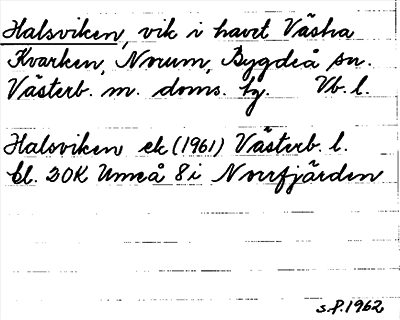 Halsviken, vik i havet Västra
Kvarken, Norum, Bygdeå sn.
Västerb. m. doms. tg. Vb. l.
Halsviken ek (1961) Västerb. l.
bl. 20K Umeå 8i Norrfjärden
s.P. 1962